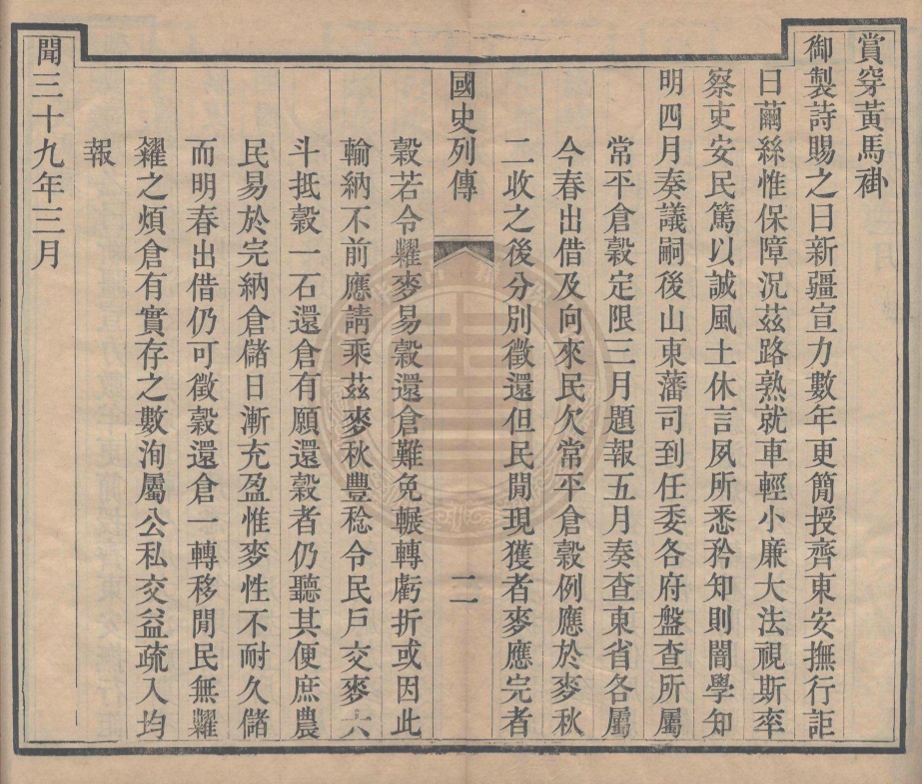 賞穿黃馬褂
御製詩賜之曰新疆宣力數年更簡授齊東安撫行詎
曰繭絲惟保障況茲路熟就車輕小廉大法視斯率
察吏安民篤以誠風土休言夙所悉矜知則闇學知
明四月奏議嗣後山東藩司到任委各府盤查所屬
常平倉穀定限三月題報五月奏查東省各屬
今春出借及向來民欠常平倉穀例應於麥秋
二收之後分別徵還但民間現獲者麥應完者
國史列傳 二
穀若令糶麥易穀還倉難免輾轉虧折或因此
輸納不前應請乘茲麥秋豐稔令民戶交麥六
斗抵穀一石還倉有願還穀者仍聽其便庶農
民易於完納倉儲日漸充盈惟麥性不耐久儲
而明春出借仍可徵穀還倉一轉移間民無糶
糴之煩倉有實存之數洵屬公私交益疏入均
報
聞三十九年三月